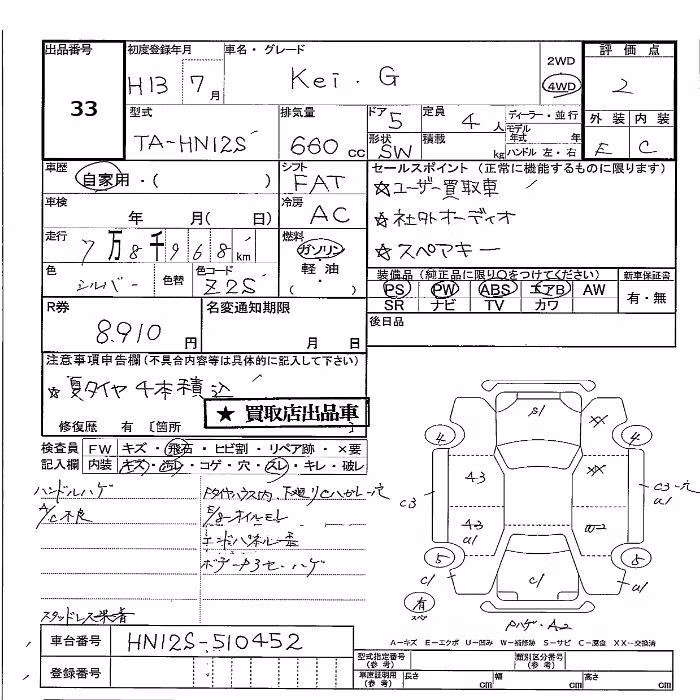 出品番号
33
初度登録年月
H13 7月
車名・グレード
Kei. G
2WD
4WD
評価点
2
外装 内装
E C
型式
TA-HN12S
排気量
660 cc
ドア
5
定員
4人
ディーラー・並行
モデル年式 年
形状
SW
積載 kg
ハンドル 左・右
車歴
自家用・( )
シフト
FAT
セールスポイント (正常に機能するものに限ります)
☆ユーザー買取車
☆社外オーディオ
☆スペアキー
車検
年 月( 日)
冷房
AC
走行
7万8千968km
燃料
ガソリン
軽油
( ・ )
色
シルバー
色替
色コード
Z2S
装備品 (純正品に限り○をつけてください)
PS PW ABS エアB AW
SR ナビ TV カワ
新車保証書
有・無
R券
8.910円
名変通知期限
月 日
後日品
注意事項申告欄(不具合内容等は具体的に記入して下さい)
☆夏タイヤ4本積込
★ 買取店出品車
修復歴 有 〔箇所 〕
検査員記入欄
FW キズ・飛石・ヒビ割・リペア跡・×要
内装 キズ・汚レ・コゲ・穴・スレ・キレ・破レ
ハンドルハゲ
A/C不良
スタッドレス装着
下廻りCハガレ穴
E/gオイルモレ
車台番号
HN12S-510452
登録番号
P1
XX
4
4
43
XX
C3
C3-穴
U1
43
U1
W-2
5
5
C1
C1
U1
有
スペア
Pハゲ・A2
A−キズ E−エクボ U−凹み W−補修跡 S−サビ C−腐食 XX−交換済
型式指定番号(参考)
類別区分番号(参考)
車庫証明用(参考)
長さ cm
幅 cm
高さ cm